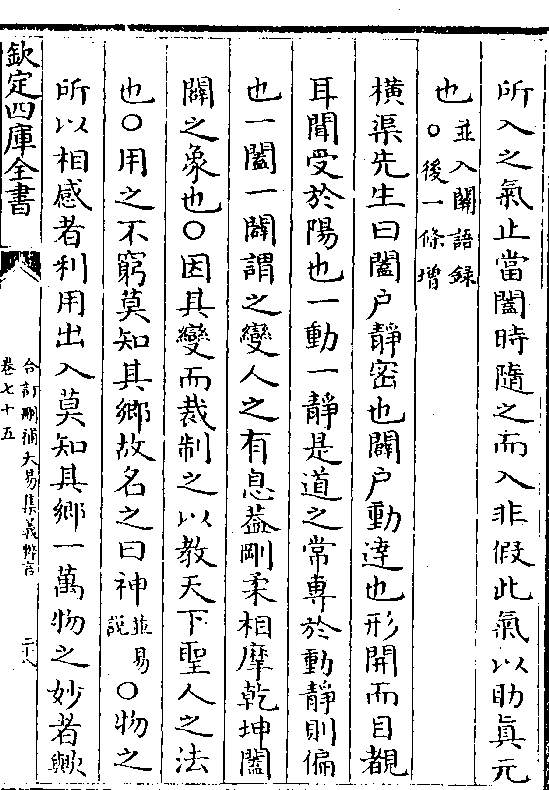 所入之氣止當闔時隨之而入非假此氣以助眞元
也並入關語録
○後一條增
橫渠先生曰闔户靜密也闢户動達也形開而目覩
耳聞受於陽也一動一靜是道之常專於動靜則偏
也一闔一闢謂之變人之有息葢剛柔相摩乾坤闔
闢之象也○因其變而裁制之以教天下聖人之法
也○用之不窮莫知其鄉故名之曰神並易說○物之
所以相感者利用出入莫知其鄉一萬物之妙者歟
欽定四庫全書
合訂刪補大易集義粹言
卷七十五
二十八